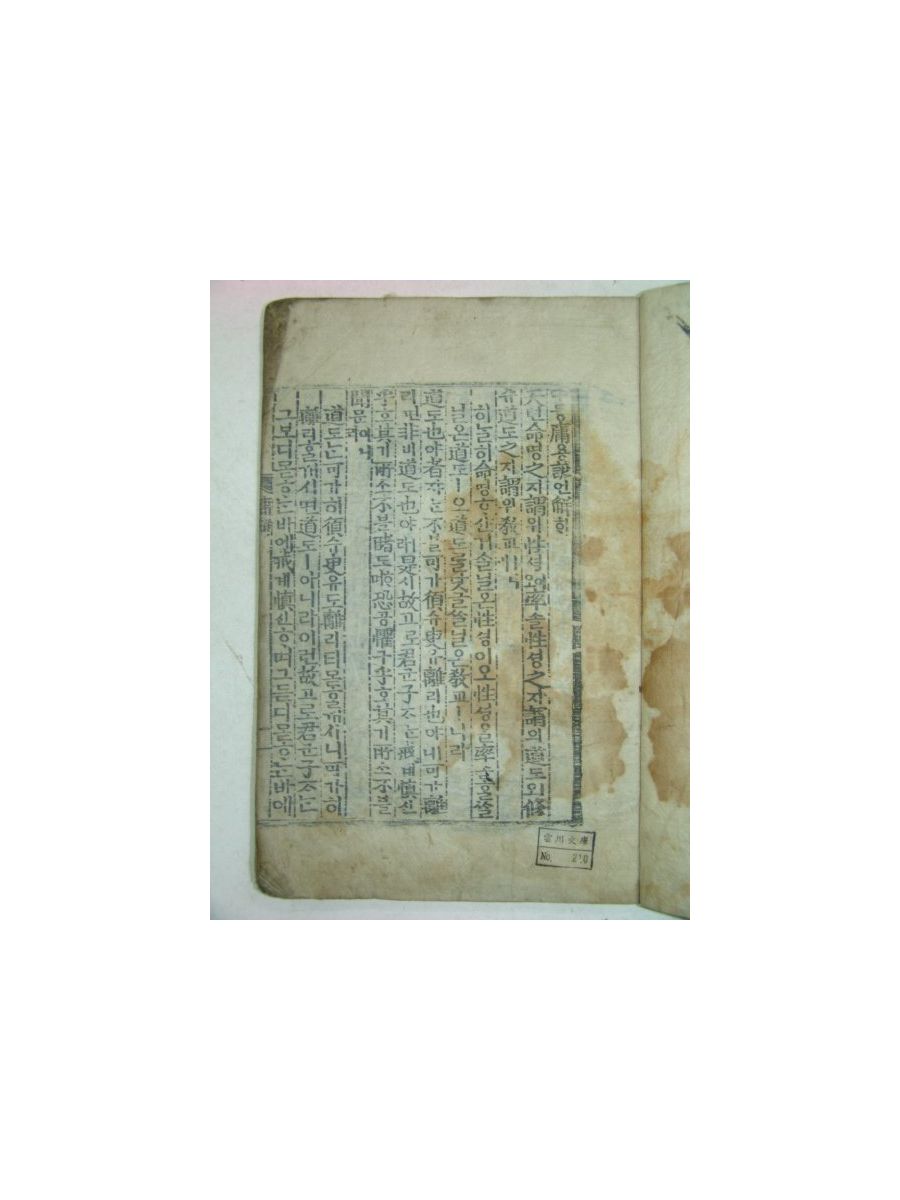 中듕庸용諺언解ᄒᆡ
天텬命명之지謂위性셩이오率솔性셩之지謂위道도ㅣ오修
슈道도之지謂위敎교ㅣ니라
하ᄂᆞᆯ히命명ᄒᆞ샨거ᄉᆞᆯ닐온性셩이오性셩을率솔ᄒᆞᆯᄊᆞᆯ
닐온道도ㅣ오道도ᄅᆞᆯ닷글ᄊᆞᆯ닐온敎교ㅣ니라
道도也야者쟈ᄂᆞᆫ不블可가須슈臾유離리也야ㅣ니可가離
리면非비道도也야ㅣ라是시故고로君군子ᄌᆞᄂᆞᆫ戒계愼신
乎호其기所소不블睹도ᄒᆞ며恐공懼구乎호其기所소不블
聞문이니라
道도ᄂᆞᆫ可가히須슈臾유도離리티몯ᄒᆞᆯ꺼시니可가히
離리ᄒᆞᆯ꺼시면道도ㅣ아니라이런故고로君군子ᄌᆞᄂᆞᆫ
그보디몯ᄒᆞᄂᆞᆫ바에戒계愼신ᄒᆞ며그듣디몯ᄒᆞᄂᆞᆫ바에
川文庫
No. 210